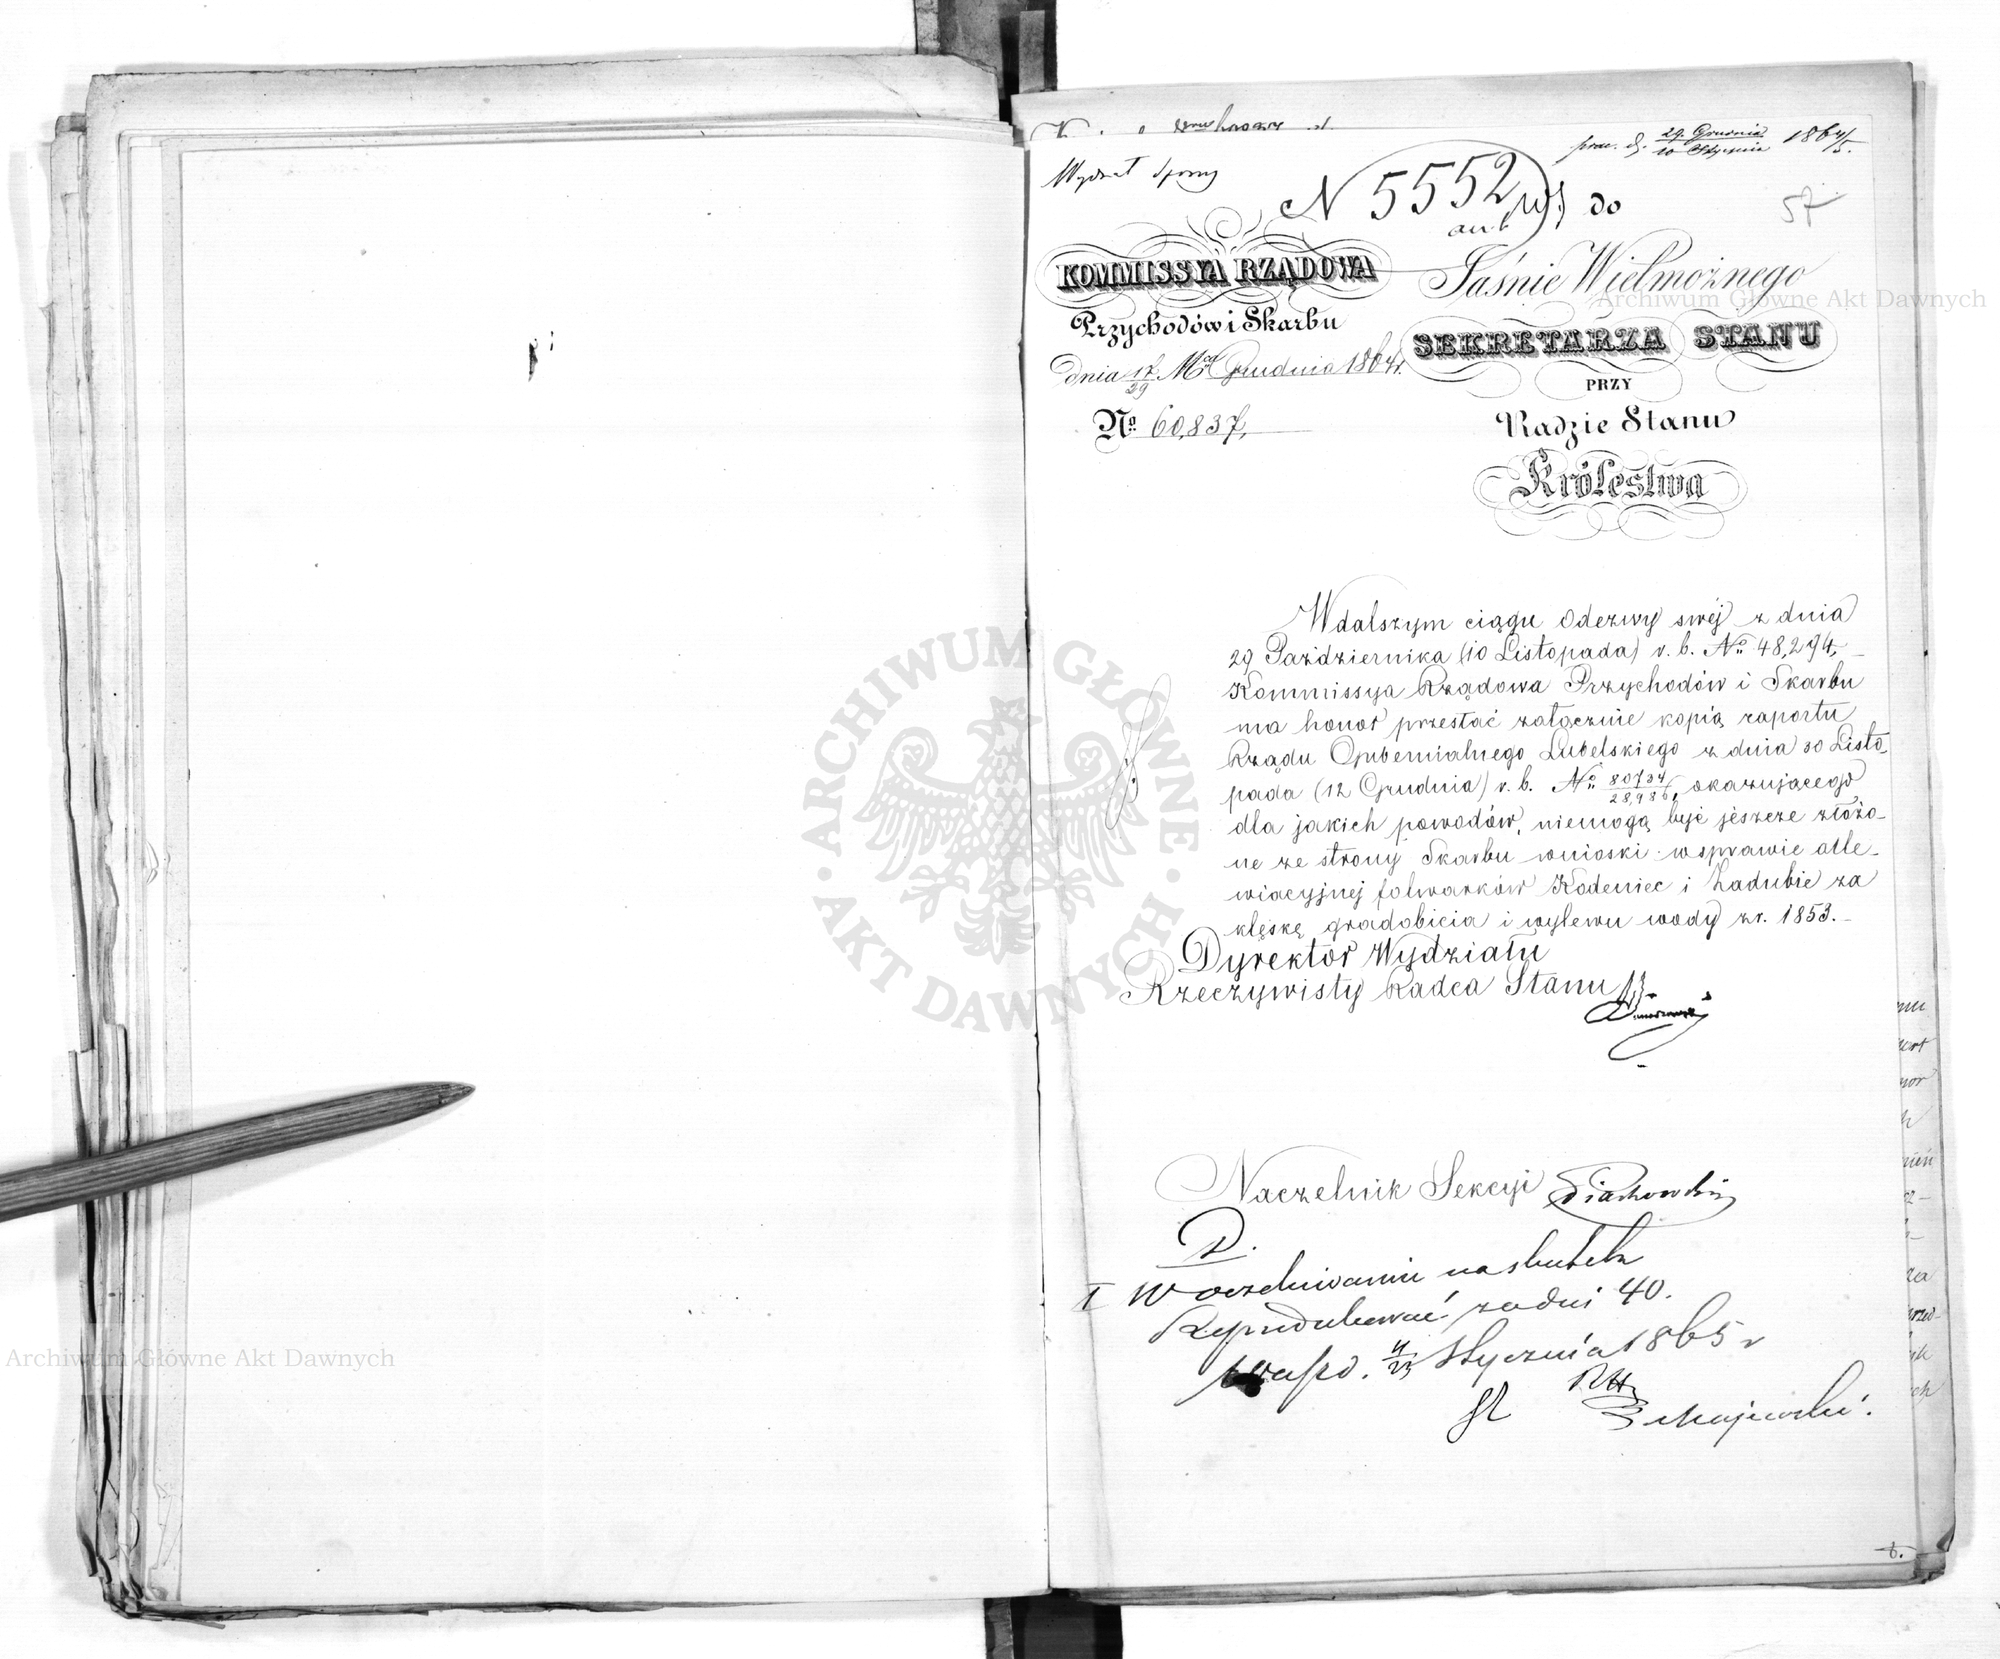 29. Grudnia
10 Stycznia 1864/5.
Wydział Sporny
N 5552 do
57
KOMMISSYA RZĄDOWA
Przychodów i Skarbu
dnia 17/29 Mca Grudnia 1864 r.
No 60,837,
Jaśnie Wielmożnego
SEKRETARZA STANU
PRZY
Radzie Stanu
Królestwa
W dalszym ciągu Odezwy swéj z dnia
29 Października (10 Listopada) r. b. No 48,294,
Kommissya Rządowa Przychodów i Skarbu
ma honor przesłać załącznie kopią raportu
Rządu Gubernialnego Lubelskiego z dnia 30 Listo-
pada (12 Grudnia) r. b. No 80734/28,986, okazującego
dla jakich powodów, niemogą być jészcze złożo-
ne ze strony Skarbu wnioski w sprawie alle-
wiacyjnéj folwarków Kodeniec i Zadubie za
klęskę gradobicia i wylewu wody z r. 1853.
Dyrektor Wydziału
Rzeczywisty Radca Stanu
Naczelnik Sekcyi Piaskowski
D.
I W oczekiwaniu na skutek
Reprodukować za dni 40.
11/23 Stycznia 1865 r
Majewski.
6.
ARCHIWUM GŁÓWNE AKT DAWNYCH
Archiwum Główne Akt Dawnych
Archiwum Główne Akt Dawnych